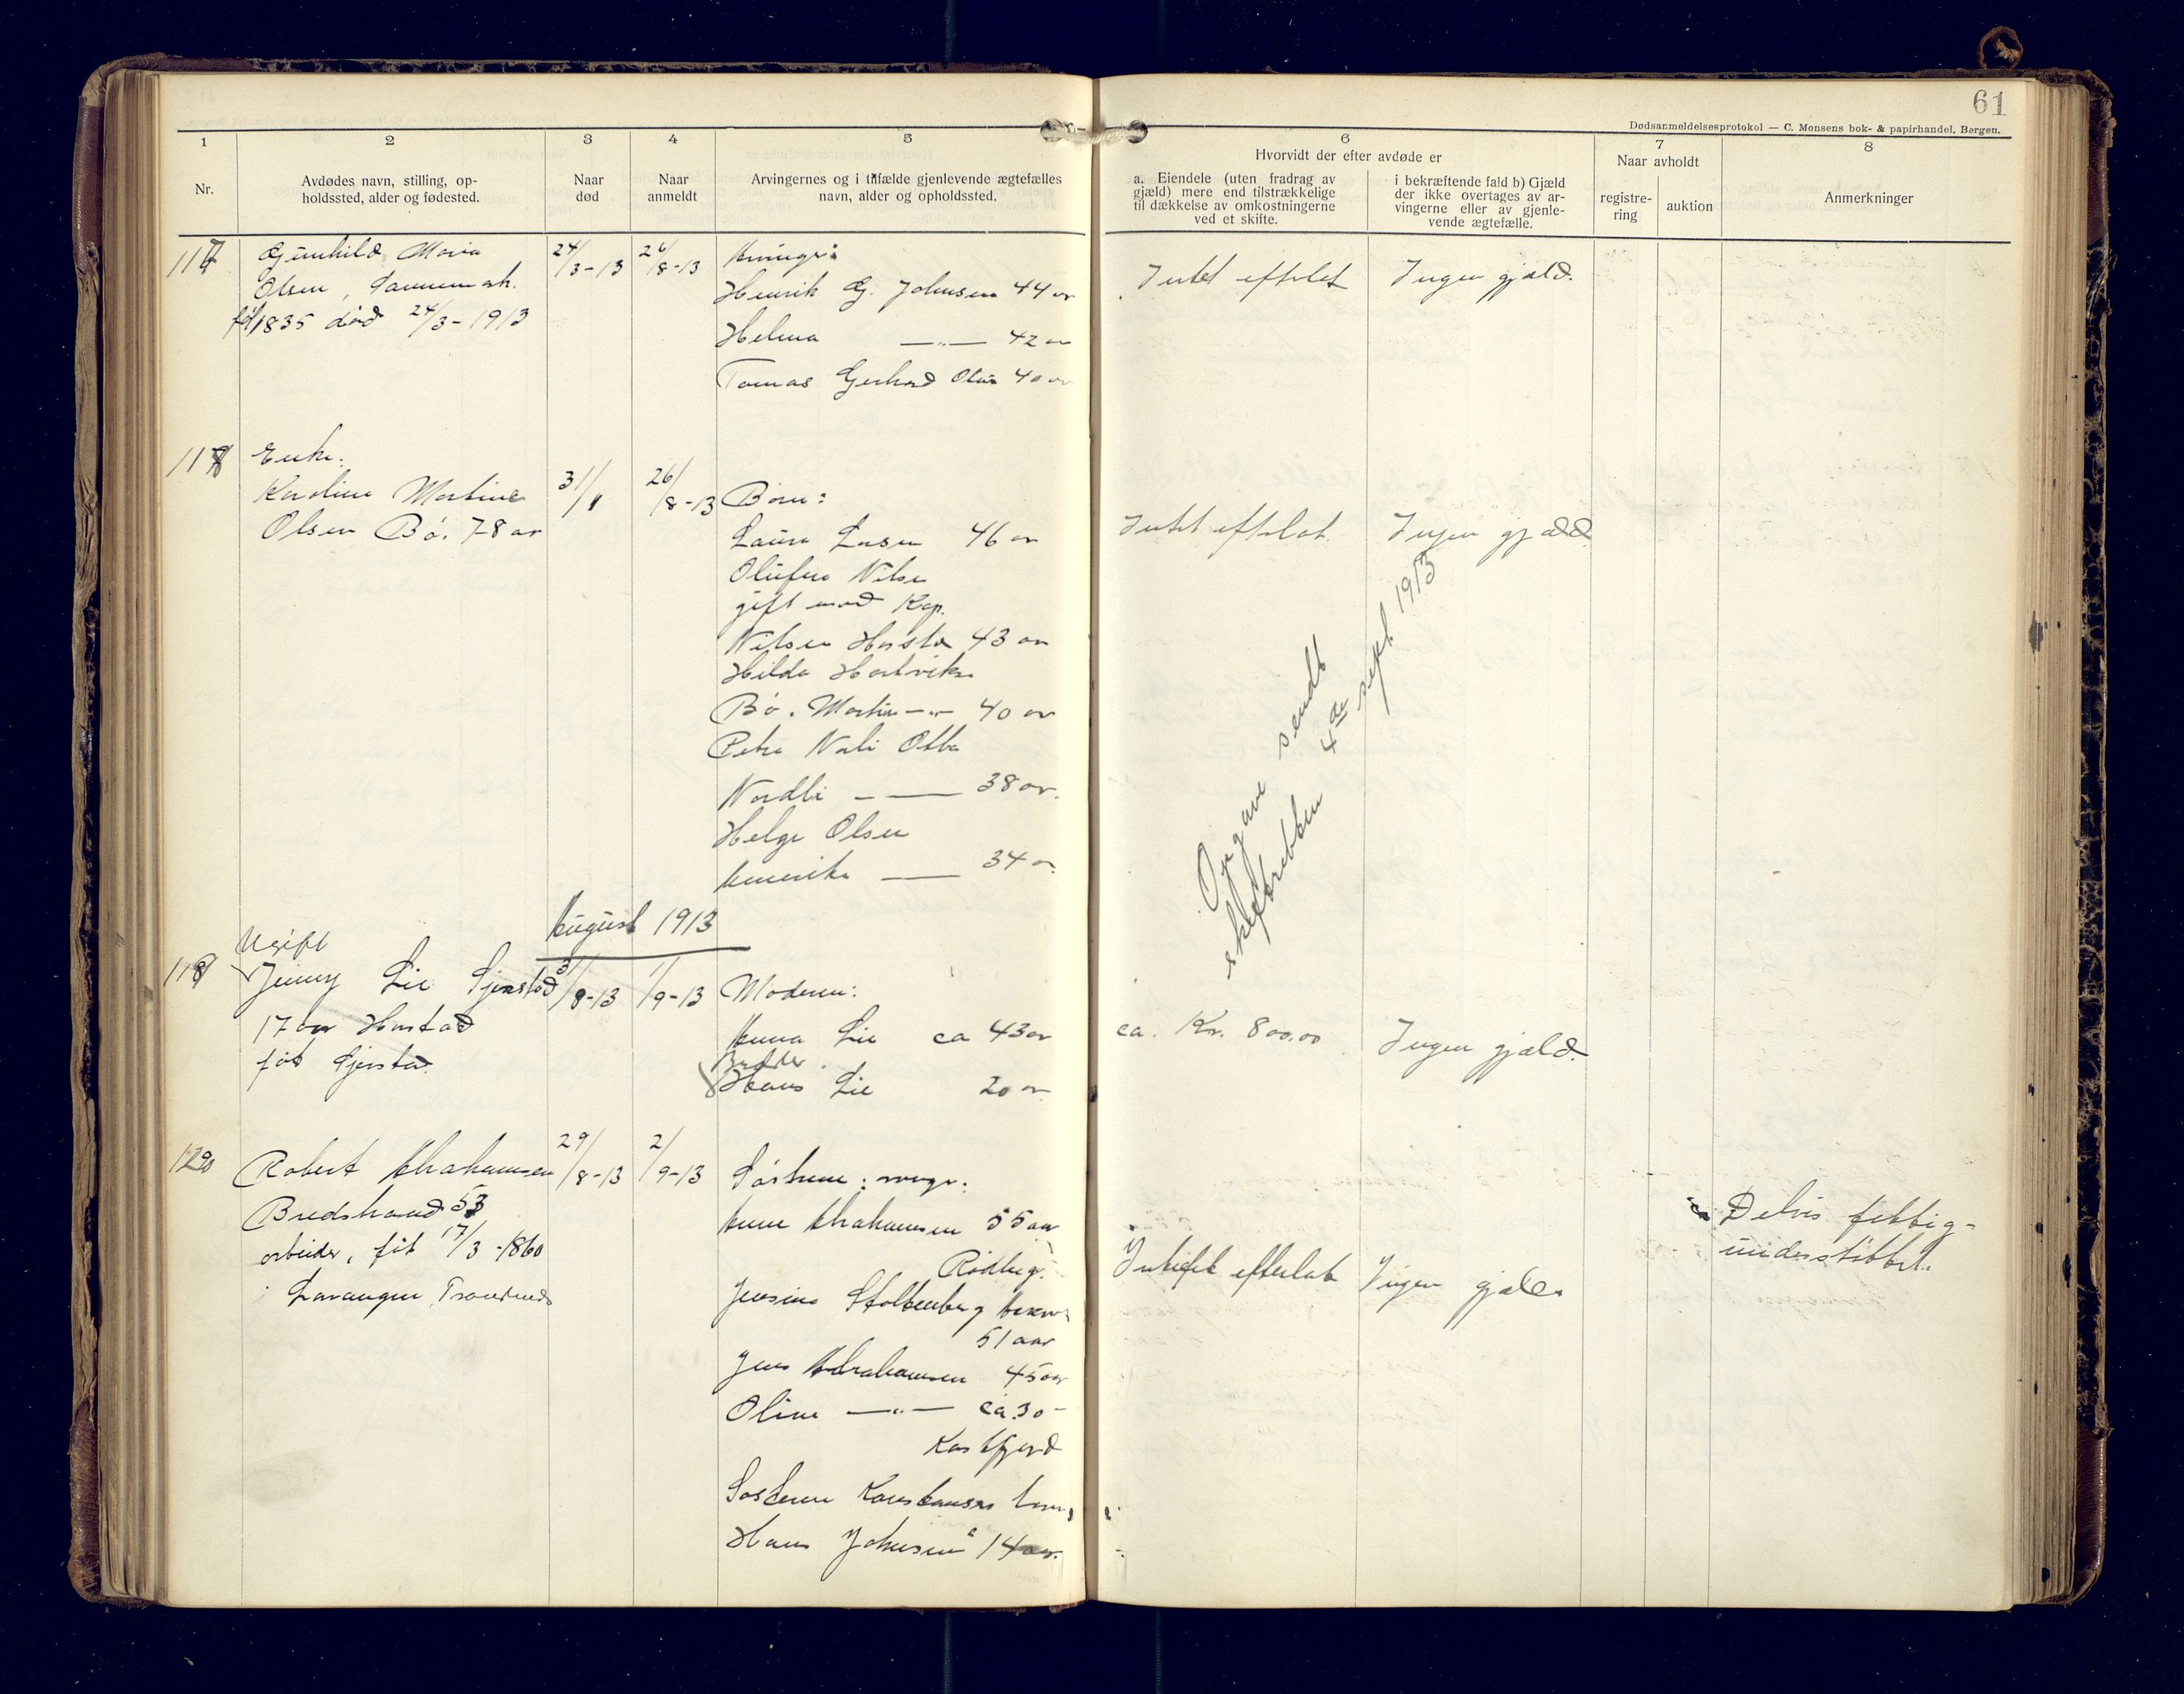 61
Dødsanmeldelsesprotokol — C. Monsens bok- & papirhandel. Bergen.
1
2
3
4
5
6
7
8
Nr.
Avdødes navn, stilling, op-
holdssted, alder og fødested.
Naar
død
Naar
anmeldt
Arvingernes og i tilfælde gjenlevende ægtefælles
navn, alder og opholdssted.
Hvorvidt der efter avdøde er
a. Eiendele (uten fradrag av
gjæld) mere end tilstrækkelige
til dækkelse av omkostningerne
ved et skifte.
i bekræftende fald b) Gjæld
der ikke overtages av ar-
vingerne eller av gjenle-
vende ægtefælle.
Naar avholdt
registre-
ring
auktion
Anmerkninger
117
Gunhild Maria
Olsen,
født 1835 død 24/3-1913
24/3-13
26/8-13
Arvinger:
Henrik G. Johnsen 44 aar
Helena —"— 42 aar
Tomas Gerhard Olsen 40 aar
Intet efterlat
Ingen gjæld.
118
Enke:
Karoline Martine
Olsen Bø. 78 aar
31/
26/8-13
Børn:
Laura 46 aar
Olufine Nilsen
gift med Kap.
Nilsen Harstad 43 aar
Hilda Hartviksen
Bø. —"— 40 aar
Petra
Nordli — — 38 aar.
Helge Olsen
Amerika — 34 aar.
Intet efterlat
Ingen gjæld
Opgave sendt
skifteretten 4de sept 1913
August 1913
119
Ugift
Jenny Lie Gjerstad
17 aar Harstad
født Gjerstad.
31/8-13
1/9-13
Moderen:
Anna Lie ca 43 aar
Broder
Hans Lie 20 aar
ca. Kr. 800.00
Ingen gjæld.
120
Robert Abrahamsen
Bredstrand 53
arbeider, født 17/3-1860
Lavangen, Trondenes
29/8-13
2/9-13
Søskene:
Anne Abrahamsen 55 aar
Rødberg.
Jensine Stoltenberg
51 aar
Jens Abrahamsen 45 aar
Oline —"— ca. 30 -
Kasfjord
Søsteren Konstanses barn,
Hans Johnsen 14 aar.
Intet efterlat
Ingen gjæld.
Delvis fattig-
understøttet.